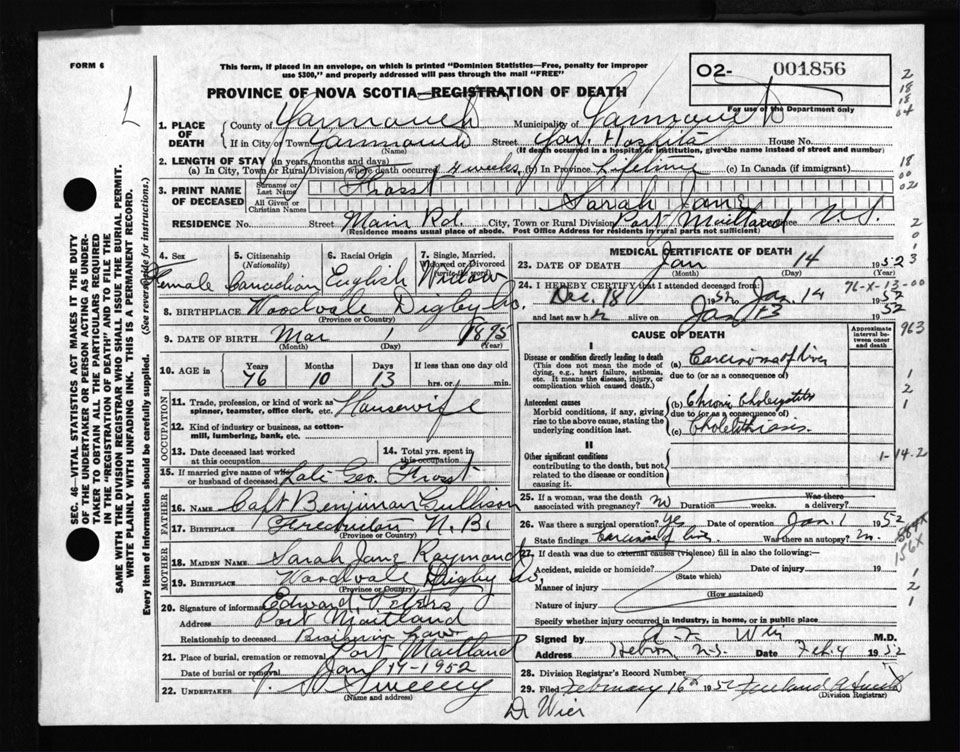 FORM 6
This form, if placed in an envelope, on which is printed "Dominion Statistics—Free, penalty for improper
use $300," and properly addressed will pass through the mail "FREE"
PROVINCE OF NOVA SCOTIA—REGISTRATION OF DEATH
02- 001856
For use of the Department only
1. PLACE OF DEATH
County of Yarmouth Municipality of Yarmouth
If in City or Town Yarmouth Street Yar. Hospital House No.
(Name) (If death occurred in a hospital or institution, give the name instead of street and number)
2. LENGTH OF STAY (in years, months and days)
(a) In City, Town or Rural Division where death occurred 4 weeks (b) In Province Lifetime (c) In Canada (if immigrant)
3. PRINT NAME OF DECEASED
Surname or Last Name Frost
All Given or Christian Names Sarah Jane
RESIDENCE No. Street Main Rd. City, Town or Rural Division Port Maitland N.S.
(Residence means usual place of abode. Post Office Address for residents by rural parts not sufficient)
4. Sex Female
5. Citizenship (Nationality) Canadian
6. Racial Origin English
7. Single, Married, Widowed or Divorced (write the word) Widow
8. BIRTHPLACE Woodvale Digby Co.
(Province or Country)
9. DATE OF BIRTH Mar 1 1875
(Month) (Day) (Year)
10. AGE in Years 76 Months 10 Days 13 If less than one day old hrs. or min.
OCCUPATION
11. Trade, profession, or kind of work as spinner, teamster, office clerk, etc. Housewife
12. Kind of industry or business, as cotton-mill, lumbering, bank, etc.
13. Date deceased last worked at this occupation
14. Total yrs. spent in this occupation
15. If married give name of wife or husband of deceased Late Geo. Frost
FATHER
16. Name Capt Benjiman Gullison
17. Birthplace Fredricton N.B.
(Province or Country)
MOTHER
18. MAIDEN NAME Sarah Jane Raymond
19. BIRTHPLACE Woodvale Digby Co.
(Province or Country)
20. Signature of informant Edward Peters
Address Port Maitland
Relationship to deceased Brother in Law
21. Place of burial, cremation or removal Port Maitland
Date of burial or removal Jan 17-1952
22. UNDERTAKER Sweeny
MEDICAL CERTIFICATE OF DEATH
23. DATE OF DEATH Jan 14 1952
(Month) (Day)
24. I HEREBY CERTIFY that I attended deceased from:
Dec. 18 Jan. 14 1952
76-X-13-00
and last saw h alive on Jan 13 1952
CAUSE OF DEATH
Approximate interval between onset and death
I
Disease or condition directly leading to death
(This does not mean the mode of dying, e.g., heart failure, asthenia, etc. It means the disease, injury, or complication which caused death.)
(a) Carcinoma of liver
due to (or as a consequence of)
Antecedent causes
Morbid conditions, if any, giving rise to the above cause, stating the underlying condition last.
(b) Chronic Cholecystitis
due to (or as a consequence of)
(c) Cholelithiasis
II
Other significant conditions
contributing to the death, but not related to the disease or condition causing it.
1-14-2
25. If a woman, was the death associated with pregnancy? no Duration weeks. Was there a delivery?
26. Was there surgical operation? Yes Date of operation Jan. 1 1952
State findings Carcinoma of liver Was there an autopsy? no
27. If death was due to external causes (violence) fill in also the following:
Accident, suicide or homicide? Date of injury 19
(State which)
Manner of injury
(How sustained)
Nature of injury
Specify whether injury occurred in industry, in home, or in public place
Signed by A. F. Weir M.D.
Address Hebron, N.S. Date Feb. 4 1952
28. Division Registrar's Record Number
29. Filed February 16th 1952
(Division Registrar)
Dr Weir
SEC. 46—VITAL STATISTICS ACT MAKES IT THE DUTY
OF THE UNDERTAKER OR PERSON ACTING AS UNDER-
TAKER TO OBTAIN ALL THE PARTICULARS REQUIRED
IN THE "REGISTRATION OF DEATH" AND TO FILE THE
SAME WITH THE DIVISION REGISTRAR WHO SHALL ISSUE THE BURIAL PERMIT.
WRITE PLAINLY WITH UNFADING INK. THIS IS A PERMANENT RECORD.
Every item of information should be carefully supplied. (See reverse side for instructions.)
963
156X